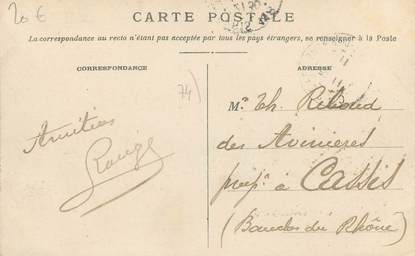 20 €
CARTE POSTALE
La correspondance au recto n'étant pas acceptée par tous les pays étrangers, se renseigner à la Poste
CORRESPONDANCE
ADRESSE
74)
Mr Th. Riboud
des
à Cassis
(Bouches du Rhône)
Amitiés